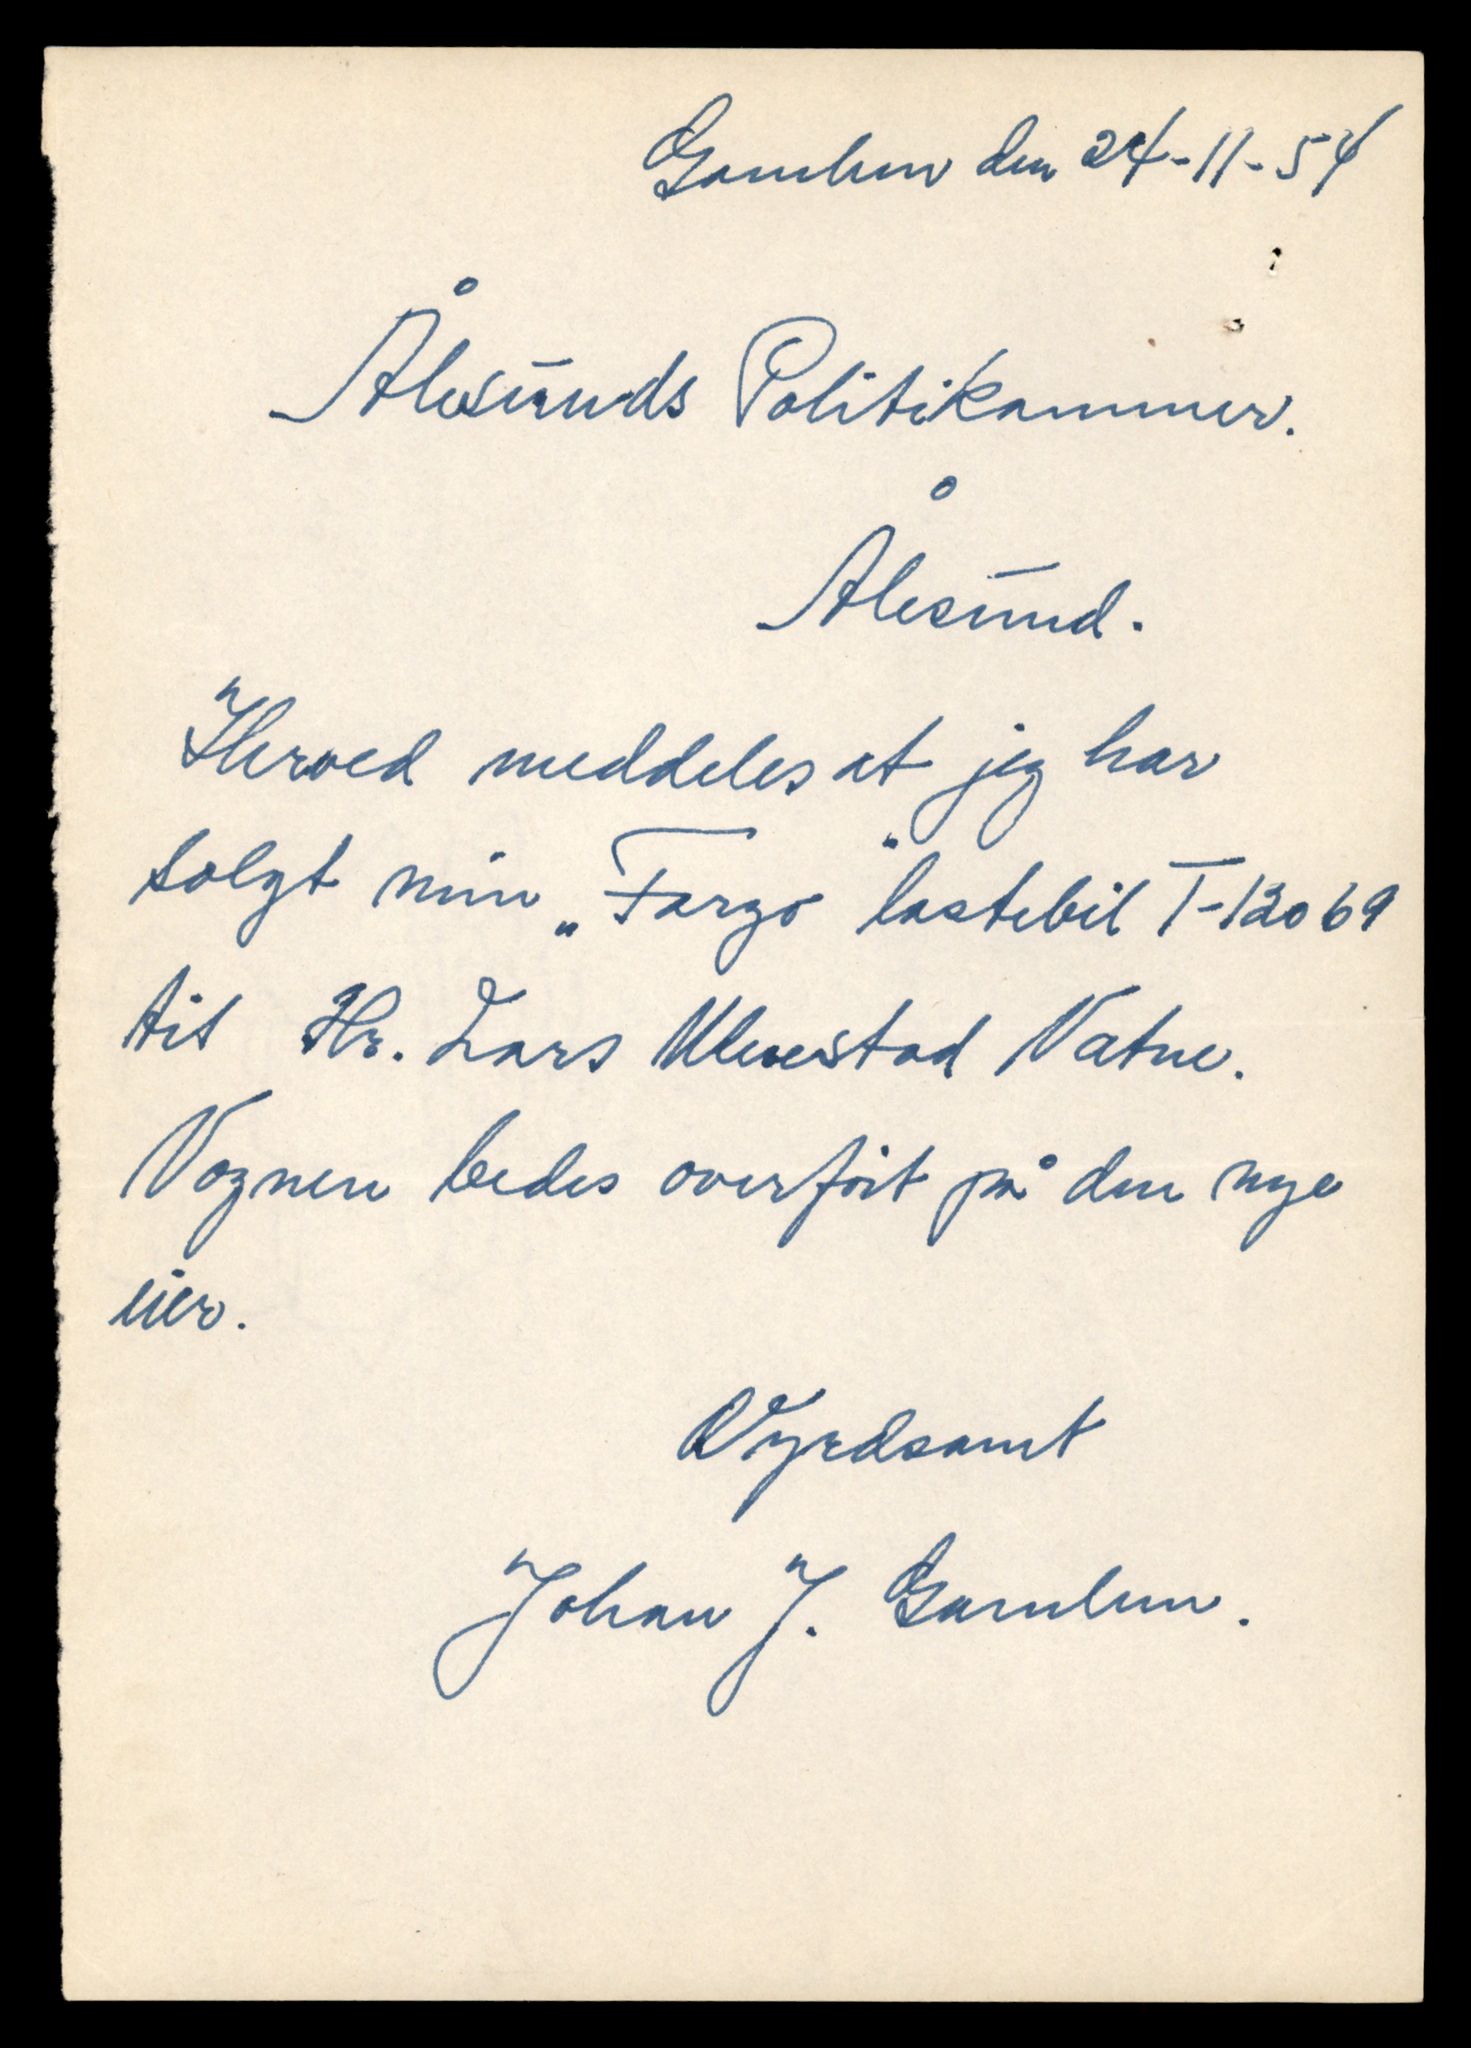 Gamlem den 24-11-54
Ålesunds Politikammer.
Ålesund.
Herved meddeles at jeg har
solgt min „Fargo" lastebil T-12069
til Hr. Lars Ulvestad Vatne.
Vognen bedes overført på den nye
eier.
Ærbødsamt
Johan J. Gamlem.